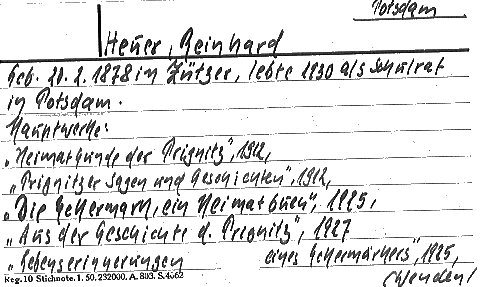 Potsdam
Heuer, Reinhard
Geb. 20.2.1878 in Zützer, lebte 1930 als Schulrat
in Potsdam.
Hauptwerke:
„Heimatkunde der Prignitz", 1912,
„Prignitzer Sagen und Geschichten", 1912,
„Die Ostmark, ein Heimatbuch", 1925,
„Aus der Geschichte d. Prignitz", 1927
„Lebenserinnerungen eines Ostmärkers", 1925,
Reg. 10 Stichnote. I. 50. 232000. A. 803. S. 4662